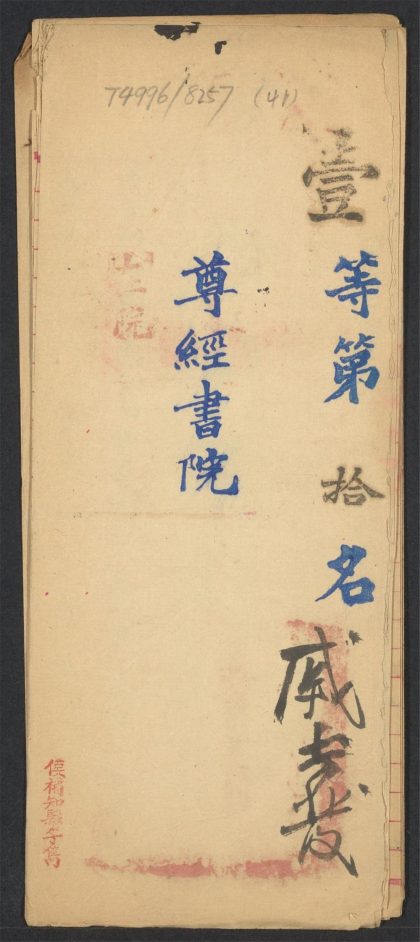 T4996/8257 (41)
壹等第拾名
戚 發
尊經書院
院
候補知縣